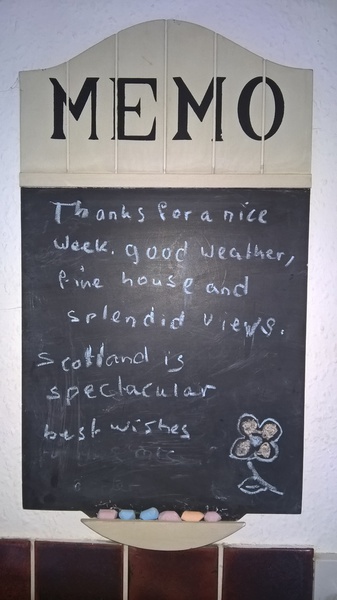 MEMO
Thanks for a nice
week. good weather,
fine house and
splendid views.
Scotland is
spectacular
best wishes